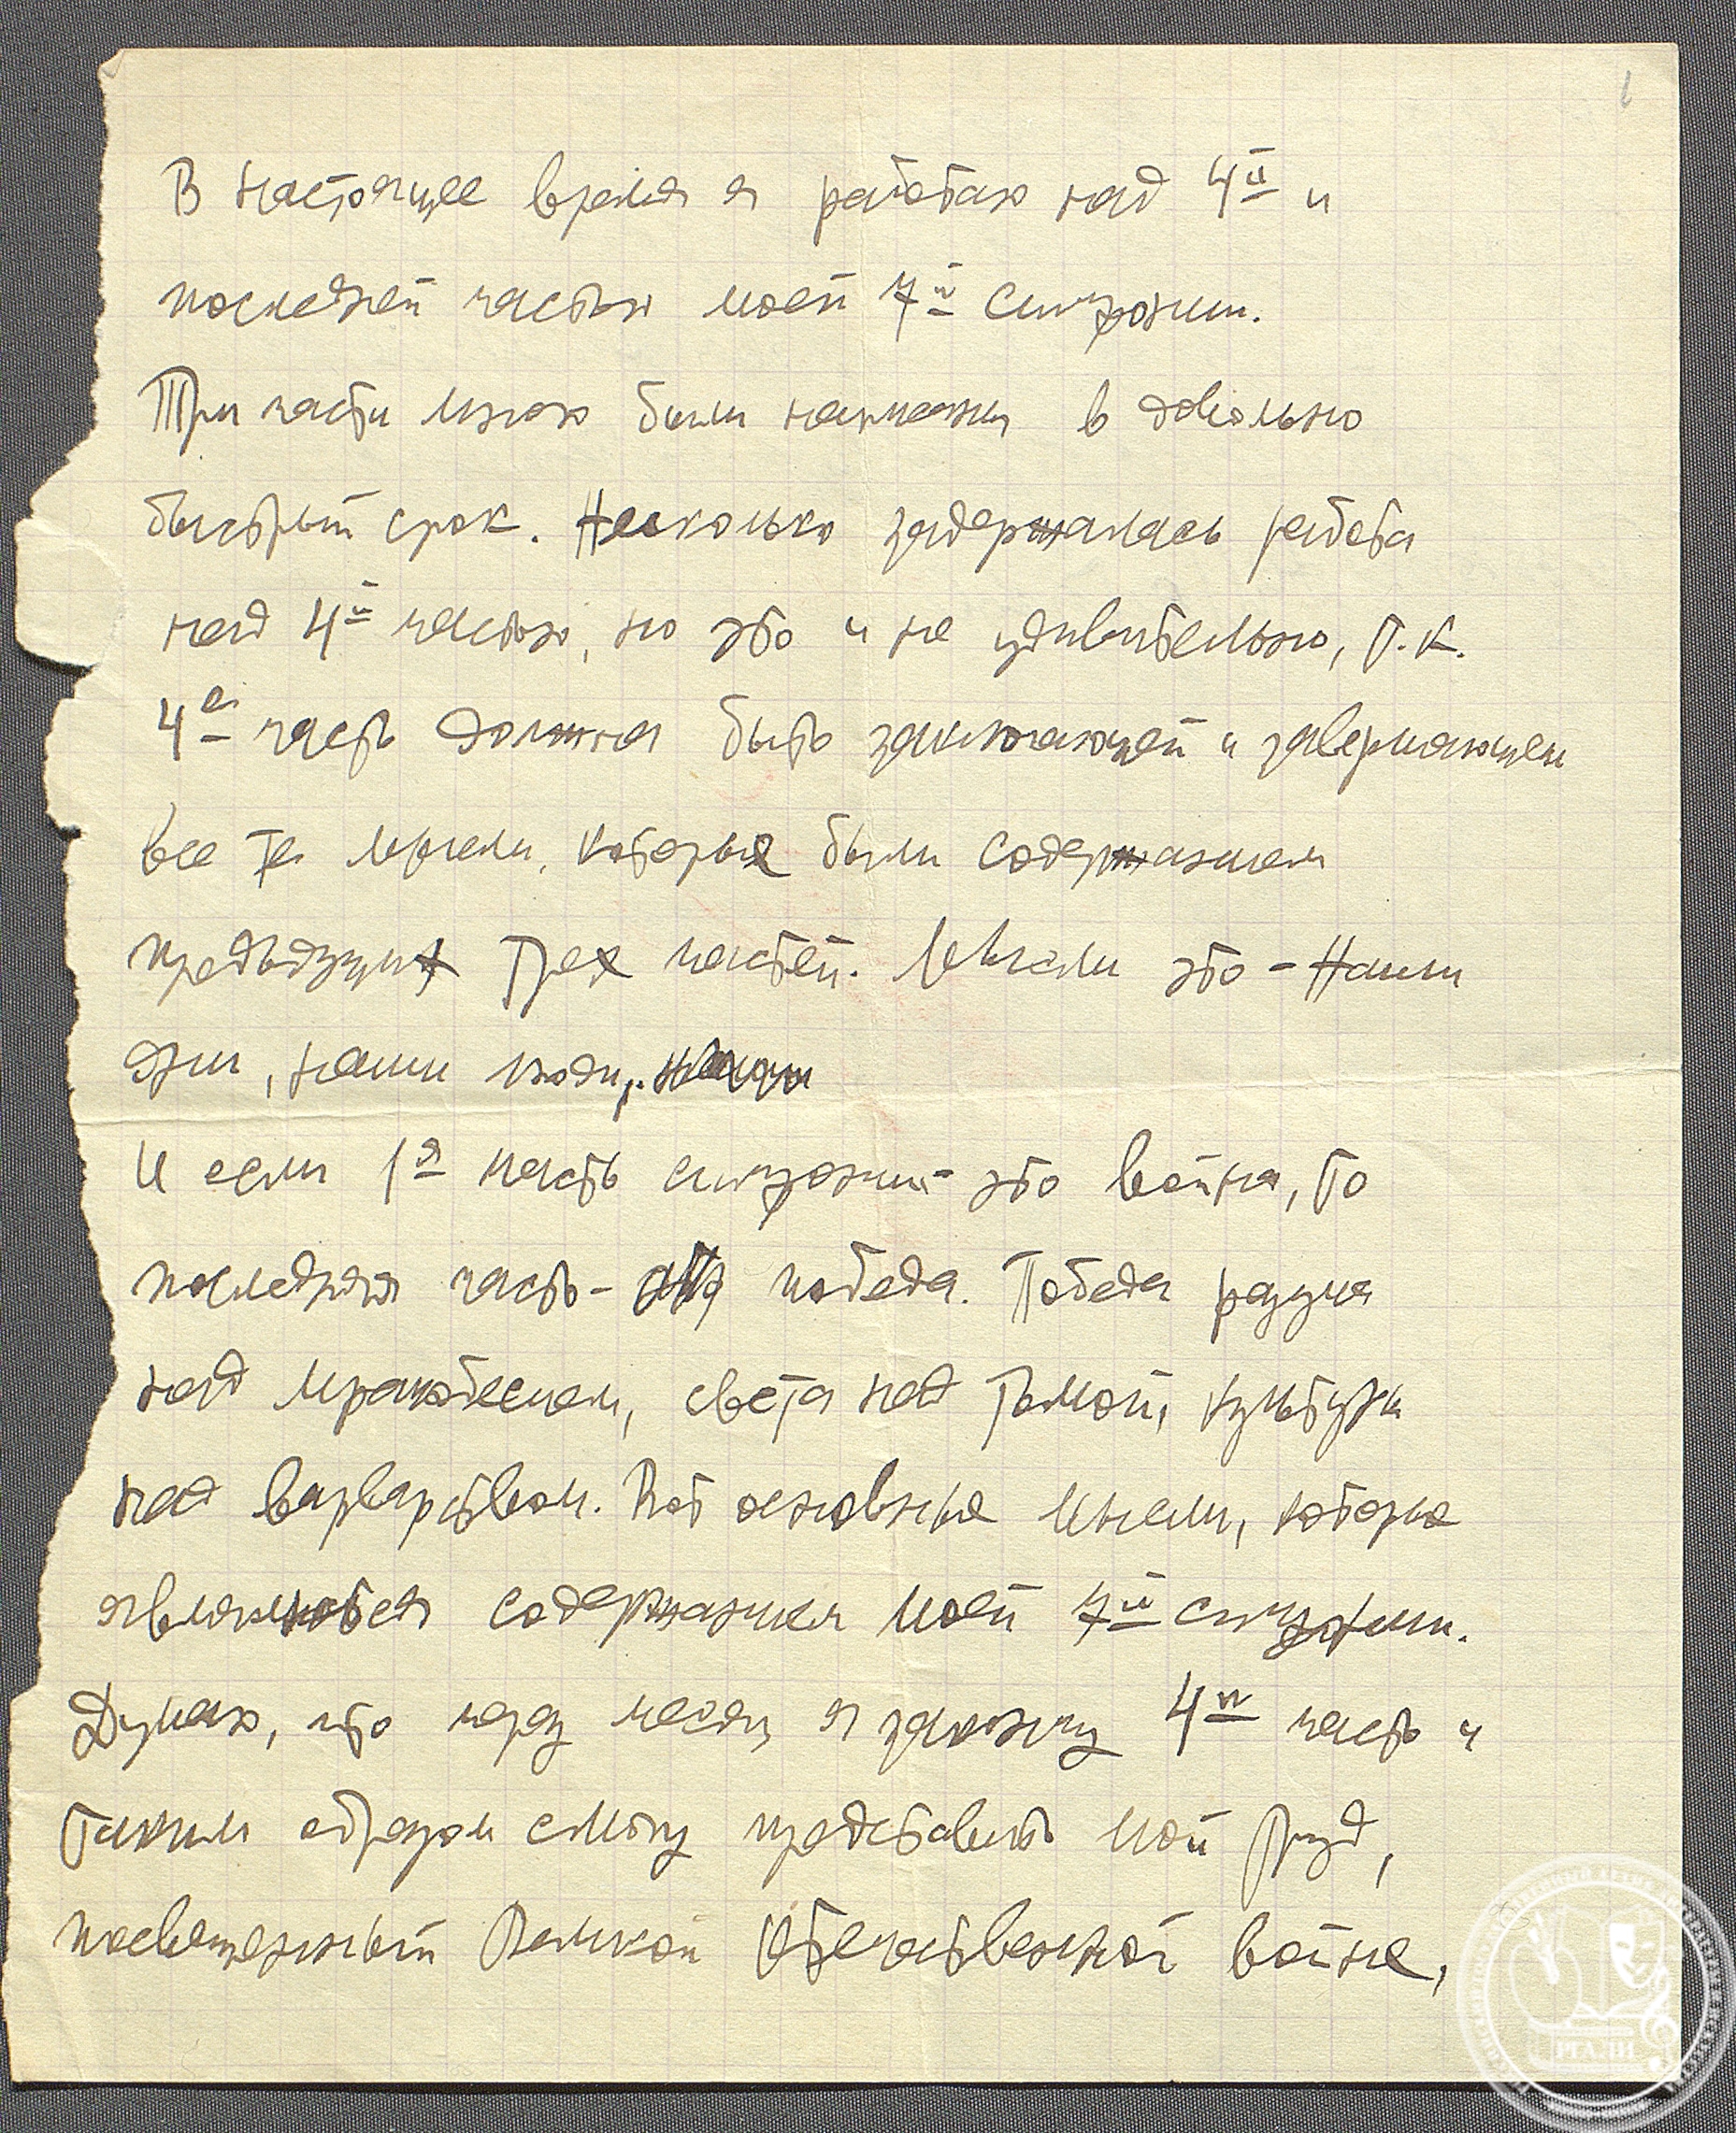 1
В настоящее время я работаю над 4й и
последней частью моей 7й симфонии.
Три части мною были написаны в довольно
быстрый срок. Несколько задержалась работа
над 4й частью, но это и не удивительно, т.к.
4я часть должна быть заключающей и завершающей
все те мысли, которые были содержанием
предыдущих трех частей. Мысли это - наши
дни, наши люди,
И если 1я часть симфонии - это война, то
последняя часть - победа. Победа разума
над мракобесием, света над тьмой, культуры
над варварством. Вот основные мысли, которые
являются содержанием моей 7й симфонии.
Думаю, что через месяц я закончу 4ю часть и
таким образом смогу представить мой труд,
посвященный Великой Отечественной войне,
РГАЛИ